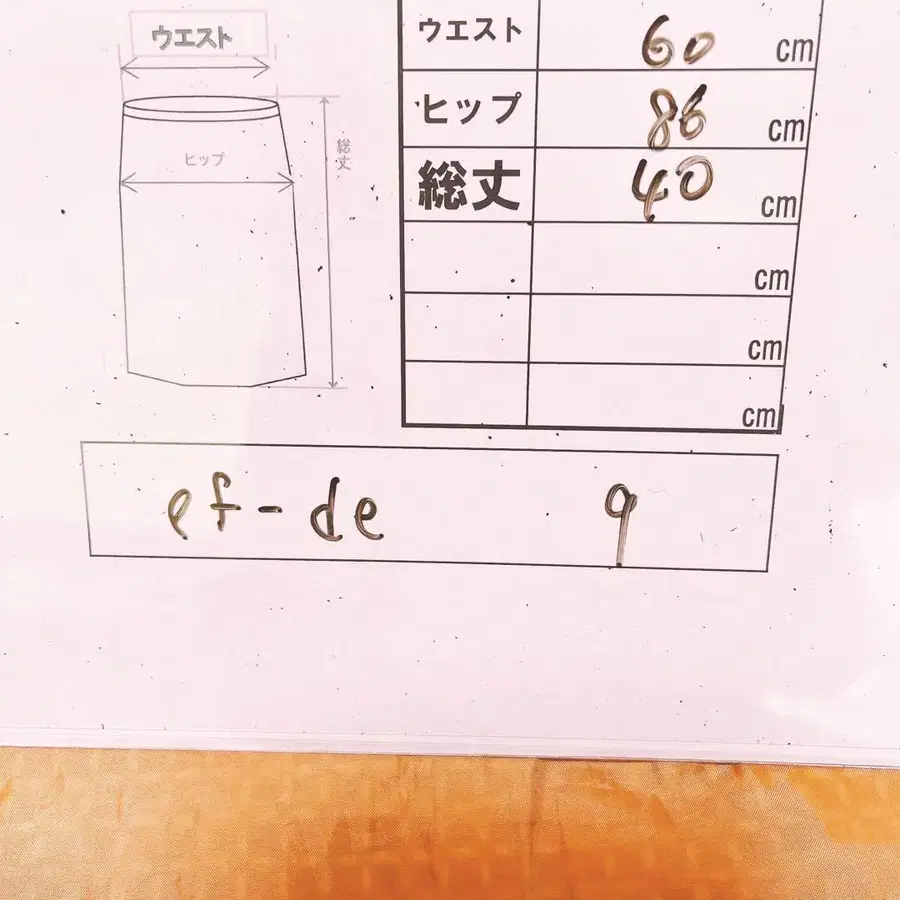 ウエスト
ヒップ
総丈
ウエスト 60 cm
ヒップ 86 cm
総丈 40 cm
cm
cm
cm
ef-de 9